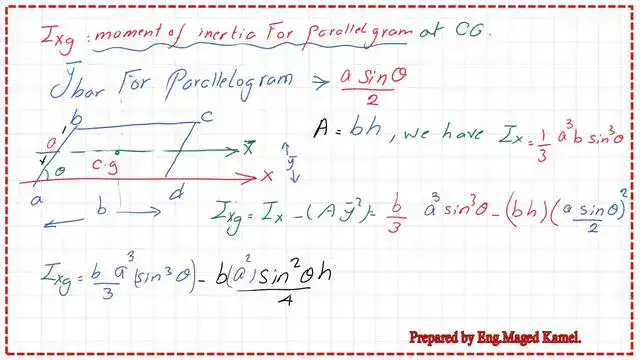 Ixg : moment of inertia For parallelgram at CG.
ȳbar For Parallelogram → a sinθ/2
b c
A = bh, we have Ix = 1/3 a³b sin³θ
a θ c.g x̄ ȳ
a d x
b
Ixg = Ix - (Aȳ²) = b/3 a³ sin³θ - (bh)(a sinθ/2)²
Ixg = b a³/3 (sin³θ) - b(a²) sin²θh/4
Prepared by Eng.Maged Kamel.